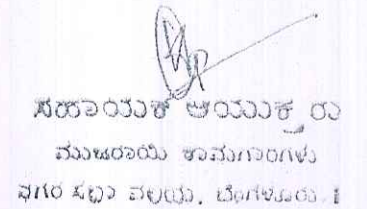 ಸಹಾಯಕ ಆಯುಕ್ತರು
ಮುಜರಾಯಿ ಕಾಮಗಾರಿಗಳು
ವಲಯ, ಬೆಂಗಳೂರು. 1